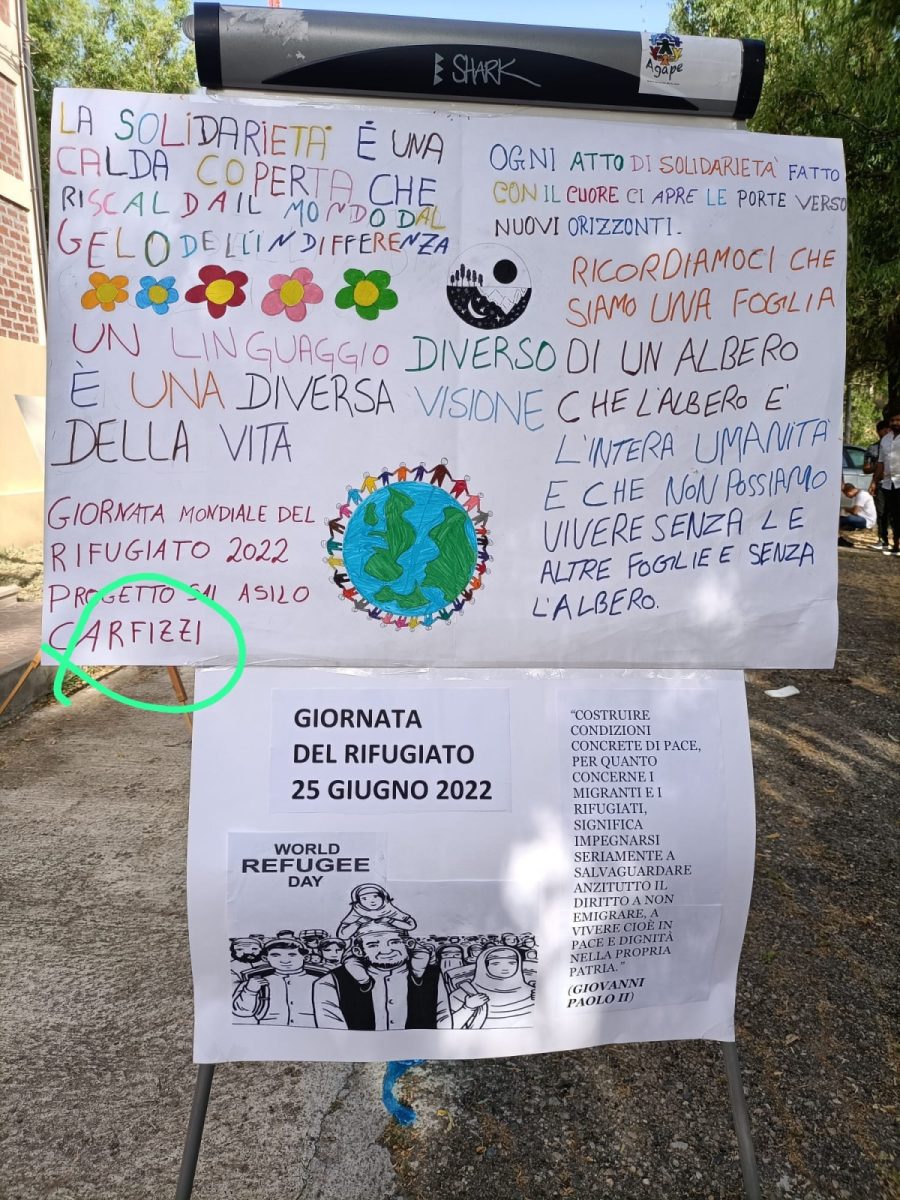 SHARK
Agape
LA SOLIDARIETÀ È UNA
CALDA COPERTA CHE
RISCALDA IL MONDO DAL
GELO DELL'INDIFFERENZA
OGNI ATTO DI SOLIDARIETÀ FATTO
CON IL CUORE CI APRE LE PORTE VERSO
NUOVI ORIZZONTI.
UN LINGUAGGIO DIVERSO
È UNA DIVERSA VISIONE
DELLA VITA
RICORDIAMOCI CHE
SIAMO UNA FOGLIA
DI UN ALBERO
CHE L'ALBERO E'
L'INTERA UMANITÀ
E CHE NON POSSIAMO
VIVERE SENZA LE
ALTRE FOGLIE E SENZA
L'ALBERO.
GIORNATA MONDIALE DEL
RIFUGIATO 2022
PROGETTO SAI ASILO
CARFIZZI
GIORNATA
DEL RIFUGIATO
25 GIUGNO 2022
WORLD
REFUGEE
DAY
“COSTRUIRE
CONDIZIONI
CONCRETE DI PACE,
PER QUANTO
CONCERNE I
MIGRANTI E I
RIFUGIATI,
SIGNIFICA
IMPEGNARSI
SERIAMENTE A
SALVAGUARDARE
ANZITUTTO IL
DIRITTO A NON
EMIGRARE, A
VIVERE CIOÈ IN
PACE E DIGNITÀ
NELLA PROPRIA
PATRIA.”
(GIOVANNI
PAOLO II)